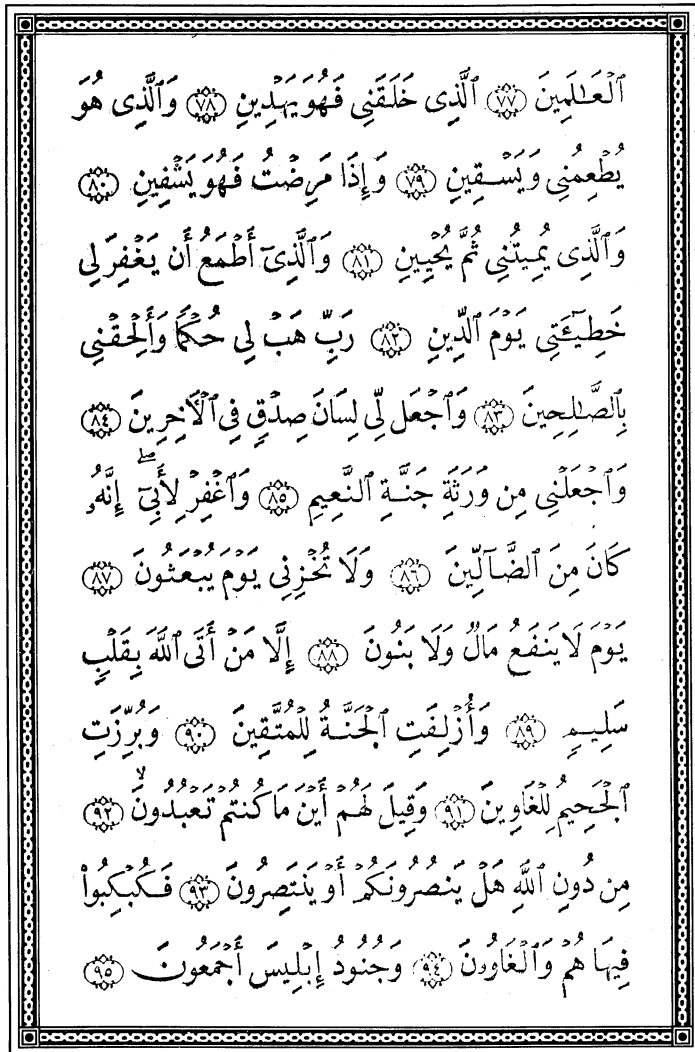 ٱلۡعَٰلَمِينَ ٧٧ ٱلَّذِى خَلَقَنِى فَهُوَ يَهۡدِينِ ٧٨ وَٱلَّذِى هُوَ
يُطۡعِمُنِى وَيَسۡقِينِ ٧٩ وَإِذَا مَرِضۡتُ فَهُوَ يَشۡفِينِ ٨٠
وَٱلَّذِى يُمِيتُنِى ثُمَّ يُحۡيِينِ ٨١ وَٱلَّذِىٓ أَطۡمَعُ أَن يَغۡفِرَ لِى
خَطِيٓـَٔتِى يَوۡمَ ٱلدِّينِ ٨٢ رَبِّ هَبۡ لِى حُكۡمًا وَأَلۡحِقۡنِى
بِٱلصَّٰلِحِينَ ٨٣ وَٱجۡعَل لِّى لِسَانَ صِدۡقٍ فِى ٱلۡأٓخِرِينَ ٨٤
وَٱجۡعَلۡنِى مِن وَرَثَةِ جَنَّةِ ٱلنَّعِيمِ ٨٥ وَٱغۡفِرۡ لِأَبِىٓۖ إِنَّهُۥ
كَانَ مِنَ ٱلضَّآلِّينَ ٨٦ وَلَا تُخۡزِنِى يَوۡمَ يُبۡعَثُونَ ٨٧
يَوۡمَ لَا يَنفَعُ مَالٌ وَلَا بَنُونَ ٨٨ إِلَّا مَنۡ أَتَى ٱللَّهَ بِقَلۡبٍ
سَلِيمٍ ٨٩ وَأُزۡلِفَتِ ٱلۡجَنَّةُ لِلۡمُتَّقِينَ ٩٠ وَبُرِّزَتِ
ٱلۡجَحِيمُ لِلۡغَاوِينَ ٩١ وَقِيلَ لَهُمۡ أَيۡنَ مَا كُنتُمۡ تَعۡبُدُونَۙ ٩٢
مِن دُونِ ٱللَّهِ هَلۡ يَنصُرُونَكُمۡ أَوۡ يَنتَصِرُونَ ٩٣ فَكُبۡكِبُوا۟
فِيهَا هُمۡ وَٱلۡغَاوُۥنَ ٩٤ وَجُنُودُ إِبۡلِيسَ أَجۡمَعُونَ ٩٥